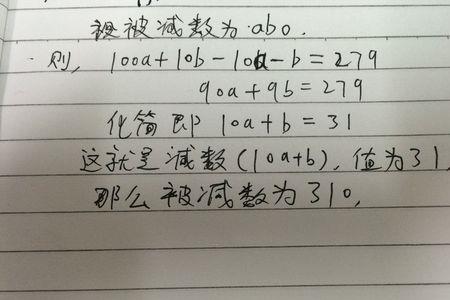 设被减数为ab0.
则, 100a+10b-10a-b=279
90a+9b=279
化简即 10a+b=31
这就是减数(10a+b),值为31
那么被减数为310,